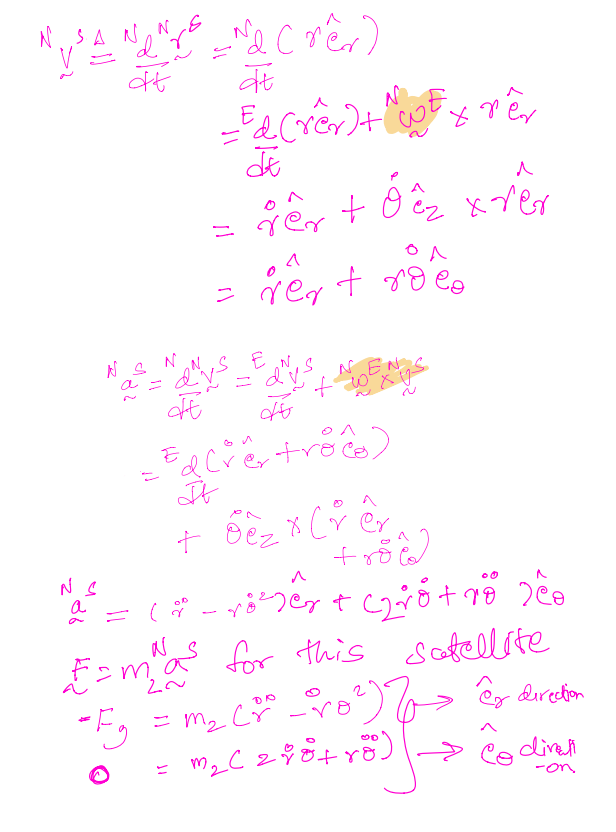 ᴺv̰ˢ ≜ ᴺd/dt ᴺr̰ˢ = ᴺd/dt (r êᵣ)
= ᴱd/dt (r êᵣ) + ᴺω̰ᴱ × r êᵣ
= ṙ êᵣ + θ̇ ê_z × r êᵣ
= ṙ êᵣ + r θ̇ ê_θ
ᴺa̰ˢ = ᴺd/dt ᴺv̰ˢ = ᴱd/dt ᴺv̰ˢ + ᴺω̰ᴱ × ᴺv̰ˢ
= ᴱd/dt (ṙ êᵣ + r θ̇ ê_θ)
+ θ̇ ê_z × (ṙ êᵣ
+ r θ̇ ê_θ)
ᴺa̰ˢ = (r̈ − r θ̇²) êᵣ + (2 ṙ θ̇ + r θ̈) ê_θ
F̰ = m₂ ᴺa̰ˢ for this satellite
−F_g = m₂ (r̈ − ṙ θ²) } → êᵣ direction
0 = m₂ (2 ṙ θ̇ + r θ̈) } → ê_θ directi
-on.